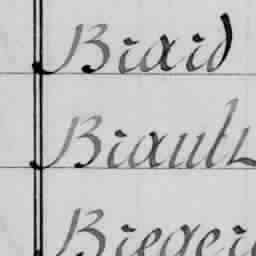 Biaid
Biault
Biegei